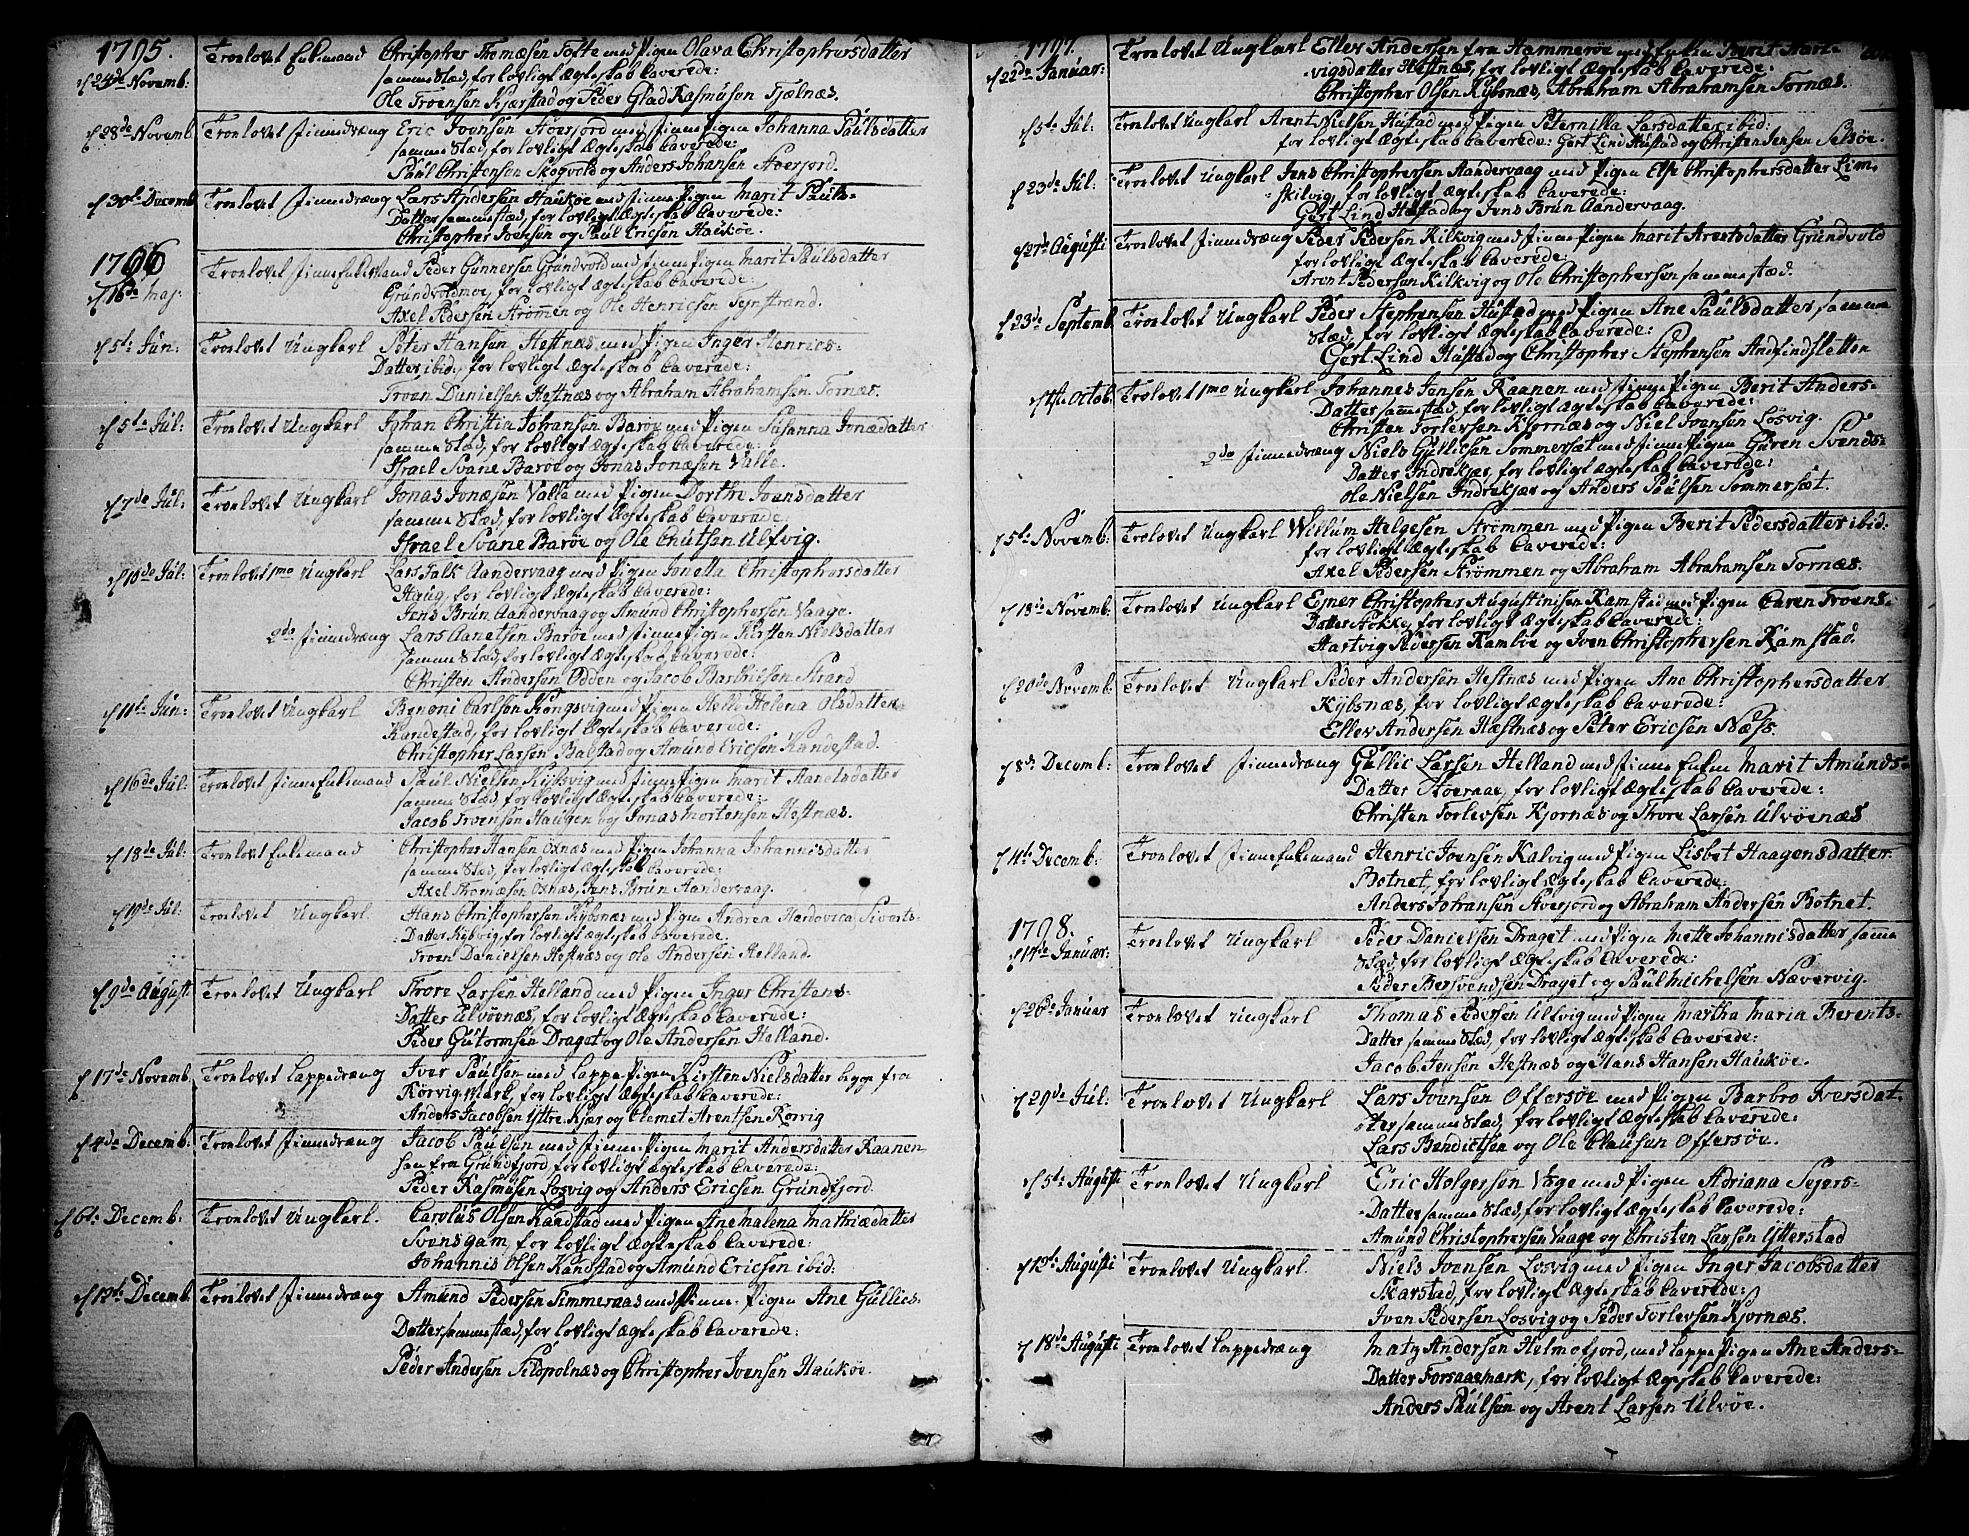 1795.
d 24de Novemb: Troelovet Enkemand Christopher Thomæsen Totte med Pigen Olava Christophersdatter
samme Stæd, for lovligt Ægteskab Caverede:
Ole Troensen Kjærstad og Peder Glad Rasmusøn Fjælnæs.
d 28de Novemb Troelovet Finnedræng Eric Ivensen Stoerfjord med Finne Pigen Johanna Paulsdatter
samme Stæd, for lovligt Ægteskab Caverede:
Paul Christensen Skogvold og Anders Johansen Stoerfjord.
d 30te Decemb Troelovet Finnedræng Lars Andersen Haukøe med Finne Pigen Marit Pauls-
Datter samme stæd, for lovligt Ægteskab Caverede:
Christopher Ivensen og Paul Ericsen Haukøe.
1796
d 16de Maj: Troelovet Finne Enkemand Peder Gunnersen Grundvold med Finne Pigen Marit Paulsdatter
Grundvoldmoe, for lovligt Ægteskab Caverede:
Axel Pedersen Strømmen og Ole Henricsen Sejrstrand.
d 5te Jun: Troelovet Ungkarl Peter Hansen Hestnæs med Pigen Inger Henrics-
Datter ibid:, for lovligt Ægteskab Caverede:
Troen Danielsen Hestnæs og Abraham Abrahamsen Tornæs.
d 5te Jul: Troelovet Ungkarl Johan Christin Johansen Barøe med Pigen Susanna Jonædatter
samme Stæd, for lovligt Ægteskab Caverede:
Israel Svane Barøe og Jonas Jonæsen Valle.
d 7de Jul: Troelovet Ungkarl Jonas Jonæsen Valle med Pigen Dorthe Ivensdatter
samme Stæd, for lovligt Ægteskab Caverede.
Israel Svane Barøe og Ole Cnutsen Ulfvig.
d 10de Jul: Troelovet 1mo Ungkarl Lars Falk Aandervaag med Pigen Jonetta Christophersdatter
Haug, for lovligt Ægteskab Caverede:
Jens Brun Aandervaag og Amund Christophersen Vaage.
2do Finnedræng Lars Aanetsen Barøe med Finne Pigen Kirsten Nielsdatter
samme Stæd, for lovligt Ægteskab Caverede:
Christen Andersen Odden og Jacob Barthelsen Strand
d 11te Jun: Troelovet Ungkarl Benoni Carlsen Kongsvig med Pigen Helle Helena Olsdatter
Kandestad, for lovligt Ægteskab Caverede:
Christopher Larsen Balstad og Amund Ericsen Kandestad.
d 16de Jul: Troelovet Finne Enkemand Paul Nielsen Kilksvig med Finne Pigen Marit Aanetsdatter
samme Stæd, for lovligt Ægteskab Caverede:
Jacob Troensen Haugen og Jonas Mortensen Hestnæs.
d 18de Jul: Troelovet Enkemand Christopher Hansen Oxnæs med Pigen Johanna Johannisdatter
samme Stæd, for lovligt Ægteskab Caverede:
Axel Thomæsen Oxnæs, Jens Brun Aandervaag.
d 19de Jul: Troelovet Ungkarl. Hans Christophersen Kybsnæs med Pigen Andrea Hardovica Siverts-
Datter Kybvig, for lovligt Ægteskab Caverede.
Troen Danielsen Hestnæs og Ole Andersen Helland.
d 9de August Troelovet Ungkarl Thore Larsen Helland med Pigen Inger Christens-
Datter Ulvøenæs, for lovligt Ægteskab Caverede:
Peder Gutormsen Draget og Ole Andersen Helland.
d 17de Novemb: Troelovet Lappedræng Iver Paulsen med Lappe Pigen Kirsten Nielsdatter begge fra
Kørvig Mark, for lovligt Ægteskab Caverede:
Anders Jacobsen Yttre Kjær og Clemet Arentsen Korvig
d 4de Decemb: Troelovet Finnedræng Jacob Paulsen med Finne Pigen Marit Andersdatter Raanen
høn fra Grundfjord, for lovligt Ægteskab Caverede:
Peder Rasmusen Losvig og Anders Ericsen Grundfjord.
d 6te Decemb: Troelovet Ungkarl. Carolus Olsen Kandstad med Pigen Ane Malena Mathiædatter
Svensgam, for lovligt Ægteskab Caverede:
Johannis Olsen Kandstad og Amund Ericsen ibid:
d 12te Decemb: Troelovet Finnedræng Amund Pedersen Timmeraas med Finne-Pigen Ane Gullics-
Datter samme stæd, for lovligt Ægteskab Caverede:
Peder Andersen Sildpolnæs og Christopher Ivensen Haukøe.
1797.
d 22de Januar: Troelovet Ungkarl Eller Andersen fra Hammerøe med Enken Berit Hart-
vigsdatter Hestnæs, for lovligt Ægteskab Caverede:
Christopher Olsen Kybsnæs, Abraham Abrahamsen Tornæs.
d 5te Jul: Troelovet Ungkarl Arent Nielsen Hustad med Pigen Peternilla Larsdatter ibid:
for lovligt Ægteskab Caverede: Gert Lind Hustad og Christen Jensen Selsøe.
d 23de Jul: Troelovet Ungkarl Jens Christophersen Aandervaag med Pigen Else Christophersdatter Lim-
skilvig, for lovligt Ægteskab Caverede:
Gert Lind Hustad og Jens Brun Aandervaag.
d 27de Augusti Troelovet Finnedræng Peder Pedersen Kilkvig med Finne-Pigen Marit Arentsdatter Grundvold
for lovligt Ægteskab Caverede:
Arent Pedersen Kilkvig og Ole Christophersen samme stæd.
d 23de Septemb. Troelovet Ungkarl Peder Stephensen Hustad med Pigen Ane Paulsdatter samme
Stæd, for lovligt Ægteskab Caverede:
Gert Lind Hustad og Christopher Stephensen Andfindsletten
d 1ste Octob. Trolovet 1mo Ungkarl Johannes Jensen Raanen med Finne Pigen Berit Anders-
Datter samme stæd, for lovligt Ægteskab Caverede:
Christen Torlevsen Kjornæs og Niel Ivensen Losvig.
2do Finnedræng Niels Gullicsen Sommersæt med Finne Pigen Guren Svends-
Datter Indrekjær, for lovligt Ægteskab Caverede:
Ole Nielsen Indrekjær og Anders Paulsen Sommersæt.
d 5te Novemb: Trolovet Ungkarl Willum Helgesen Strømmen med Pigen Berit Pedersdatter ibid:
for lovligt Ægteskab Caverede:
Axel Pedersen Strømmen og Abraham Abrahamsen Tornæs.
d 18de Novemb: Troelovet Ungkarl Ejner Christopher Augustinisen Ramstad med Pigen Caren Troens-
Datter Stokke, for lovligt Ægteskab Caverede:
Hartvig Iversen Ramløe og Iven Christophersen Ramstad.
d 20de Novemb: Troelovet Ungkarl Peder Andersen Hestnæs med Pigen Ane Christophersdatter
Kybsnæs, for lovligt Ægteskab Caverede:
Eller Andersen Hæstnæs og Peter Ericsen Næss.
d 8de Decemb: Troelovet Finnedræng Gullic Larsen Helland med Finne Enken Marit Amunds-
Datter Stoeraae, for lovligt Ægteskab Caverede:
Christen Torlevsen Kjornæs og Thore Larsen Ulvøenæs
d 14de Decemb: Troelovet Finne Enkemand Henric Ivensen Kalvig med Pigen Lisbet Haagensdatter
Botnet, for lovligt Ægteskab Caverede:
Anders Johansen Stverfjord og Abraham Andersen Botnet.
1798.
d 14de Januar: Troelovet Ungkarl Peder Danielsen Draget med Pigen Mette Johannisdatter samme
Stæd, for lovligt Ægteskab Caverede:
Peder Bersvendsen Draget og Paul Michelsen Nævervig.
d 26de Januar Troelovet Ungkarl Thomas Pedersen Ulvig med Pigen Martha Maria Berents-
Datter samme Stæd, for lovligt Ægteskab Caverede:
Jacob Jensen Hestnæs og Hans Hansen Haukøe.
d 29de Jul: Troelovet Ungkarl Lars Ivensen Offersøe med Pigen Barbro Iversdat-
ter samme stæd, for lovligt Ægteskab Caverede:
Lars Bendictsen og Ole Clausen Offersøe.
d 5te Augusti Troelovet Ungkarl Eric Holgersen Vøge med Pigen Adriana Sejers-
Datter samme Stæd, for lovligt Ægteskab Caverede:
Amund Christophersen Vaage og Christen Larsen Ytterstad
d 12te Augusti Troelovet Ungkarl Niels Ivensen Losvig med Pigen Inger Jacobsdatter
Skarstad, for lovligt Ægteskab Caverede:
Iven Pedersen Losvig og Peder Torlevsen Kjornæs.
d 18de Augusti Troelovet Lappedræng Matz Andersen Helmofjord, med Lappe Pigen Ane Anders-
Datter Forsaaemark, for lovligt Ægteskab Caverede:
Anders Paulsen og Arent Larsen Ulvøe.